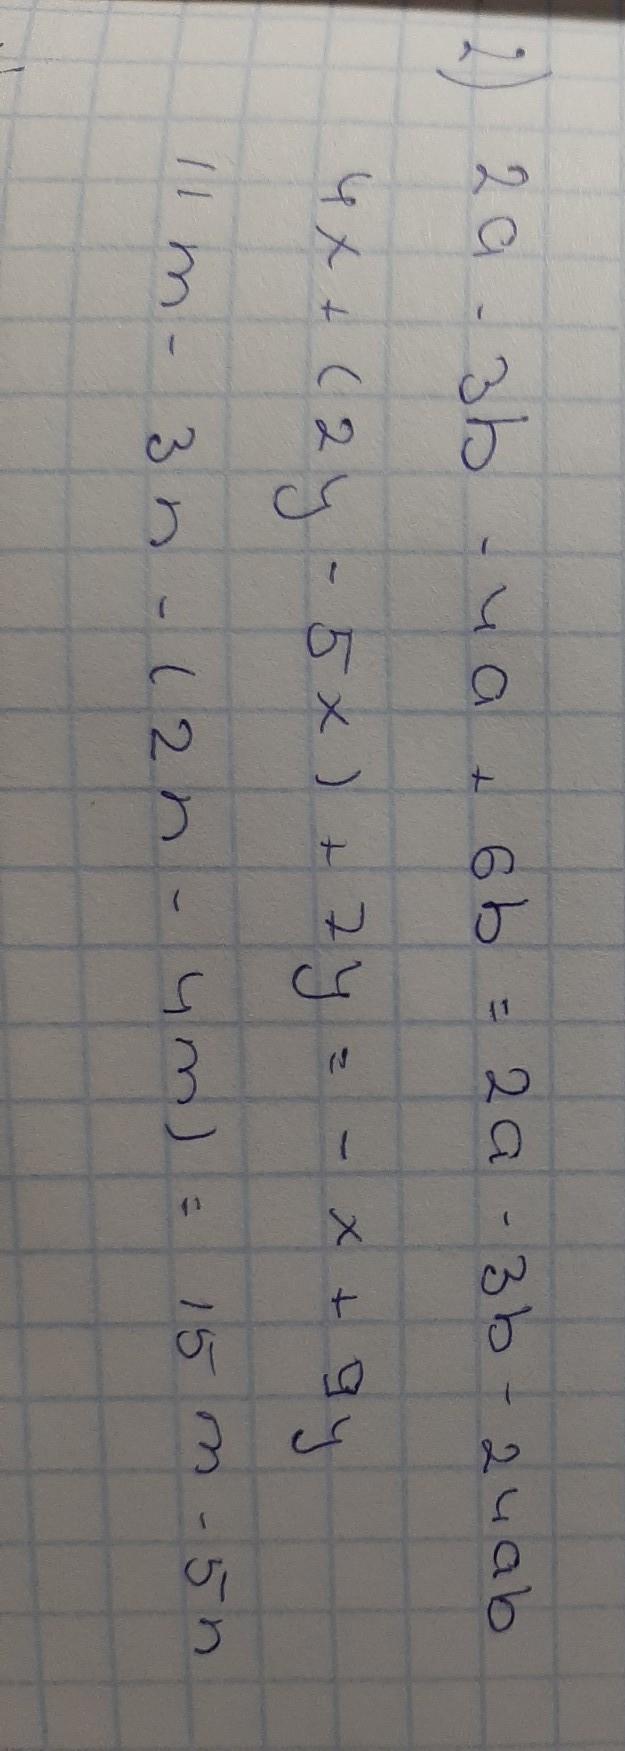 2) 2a - 3b - 4a + 6b = 2a - 3b - 24ab
4x + (2y - 5x) + 7y = - x + 9y
11m - 3n - (2n - 4m) = 15m - 5n